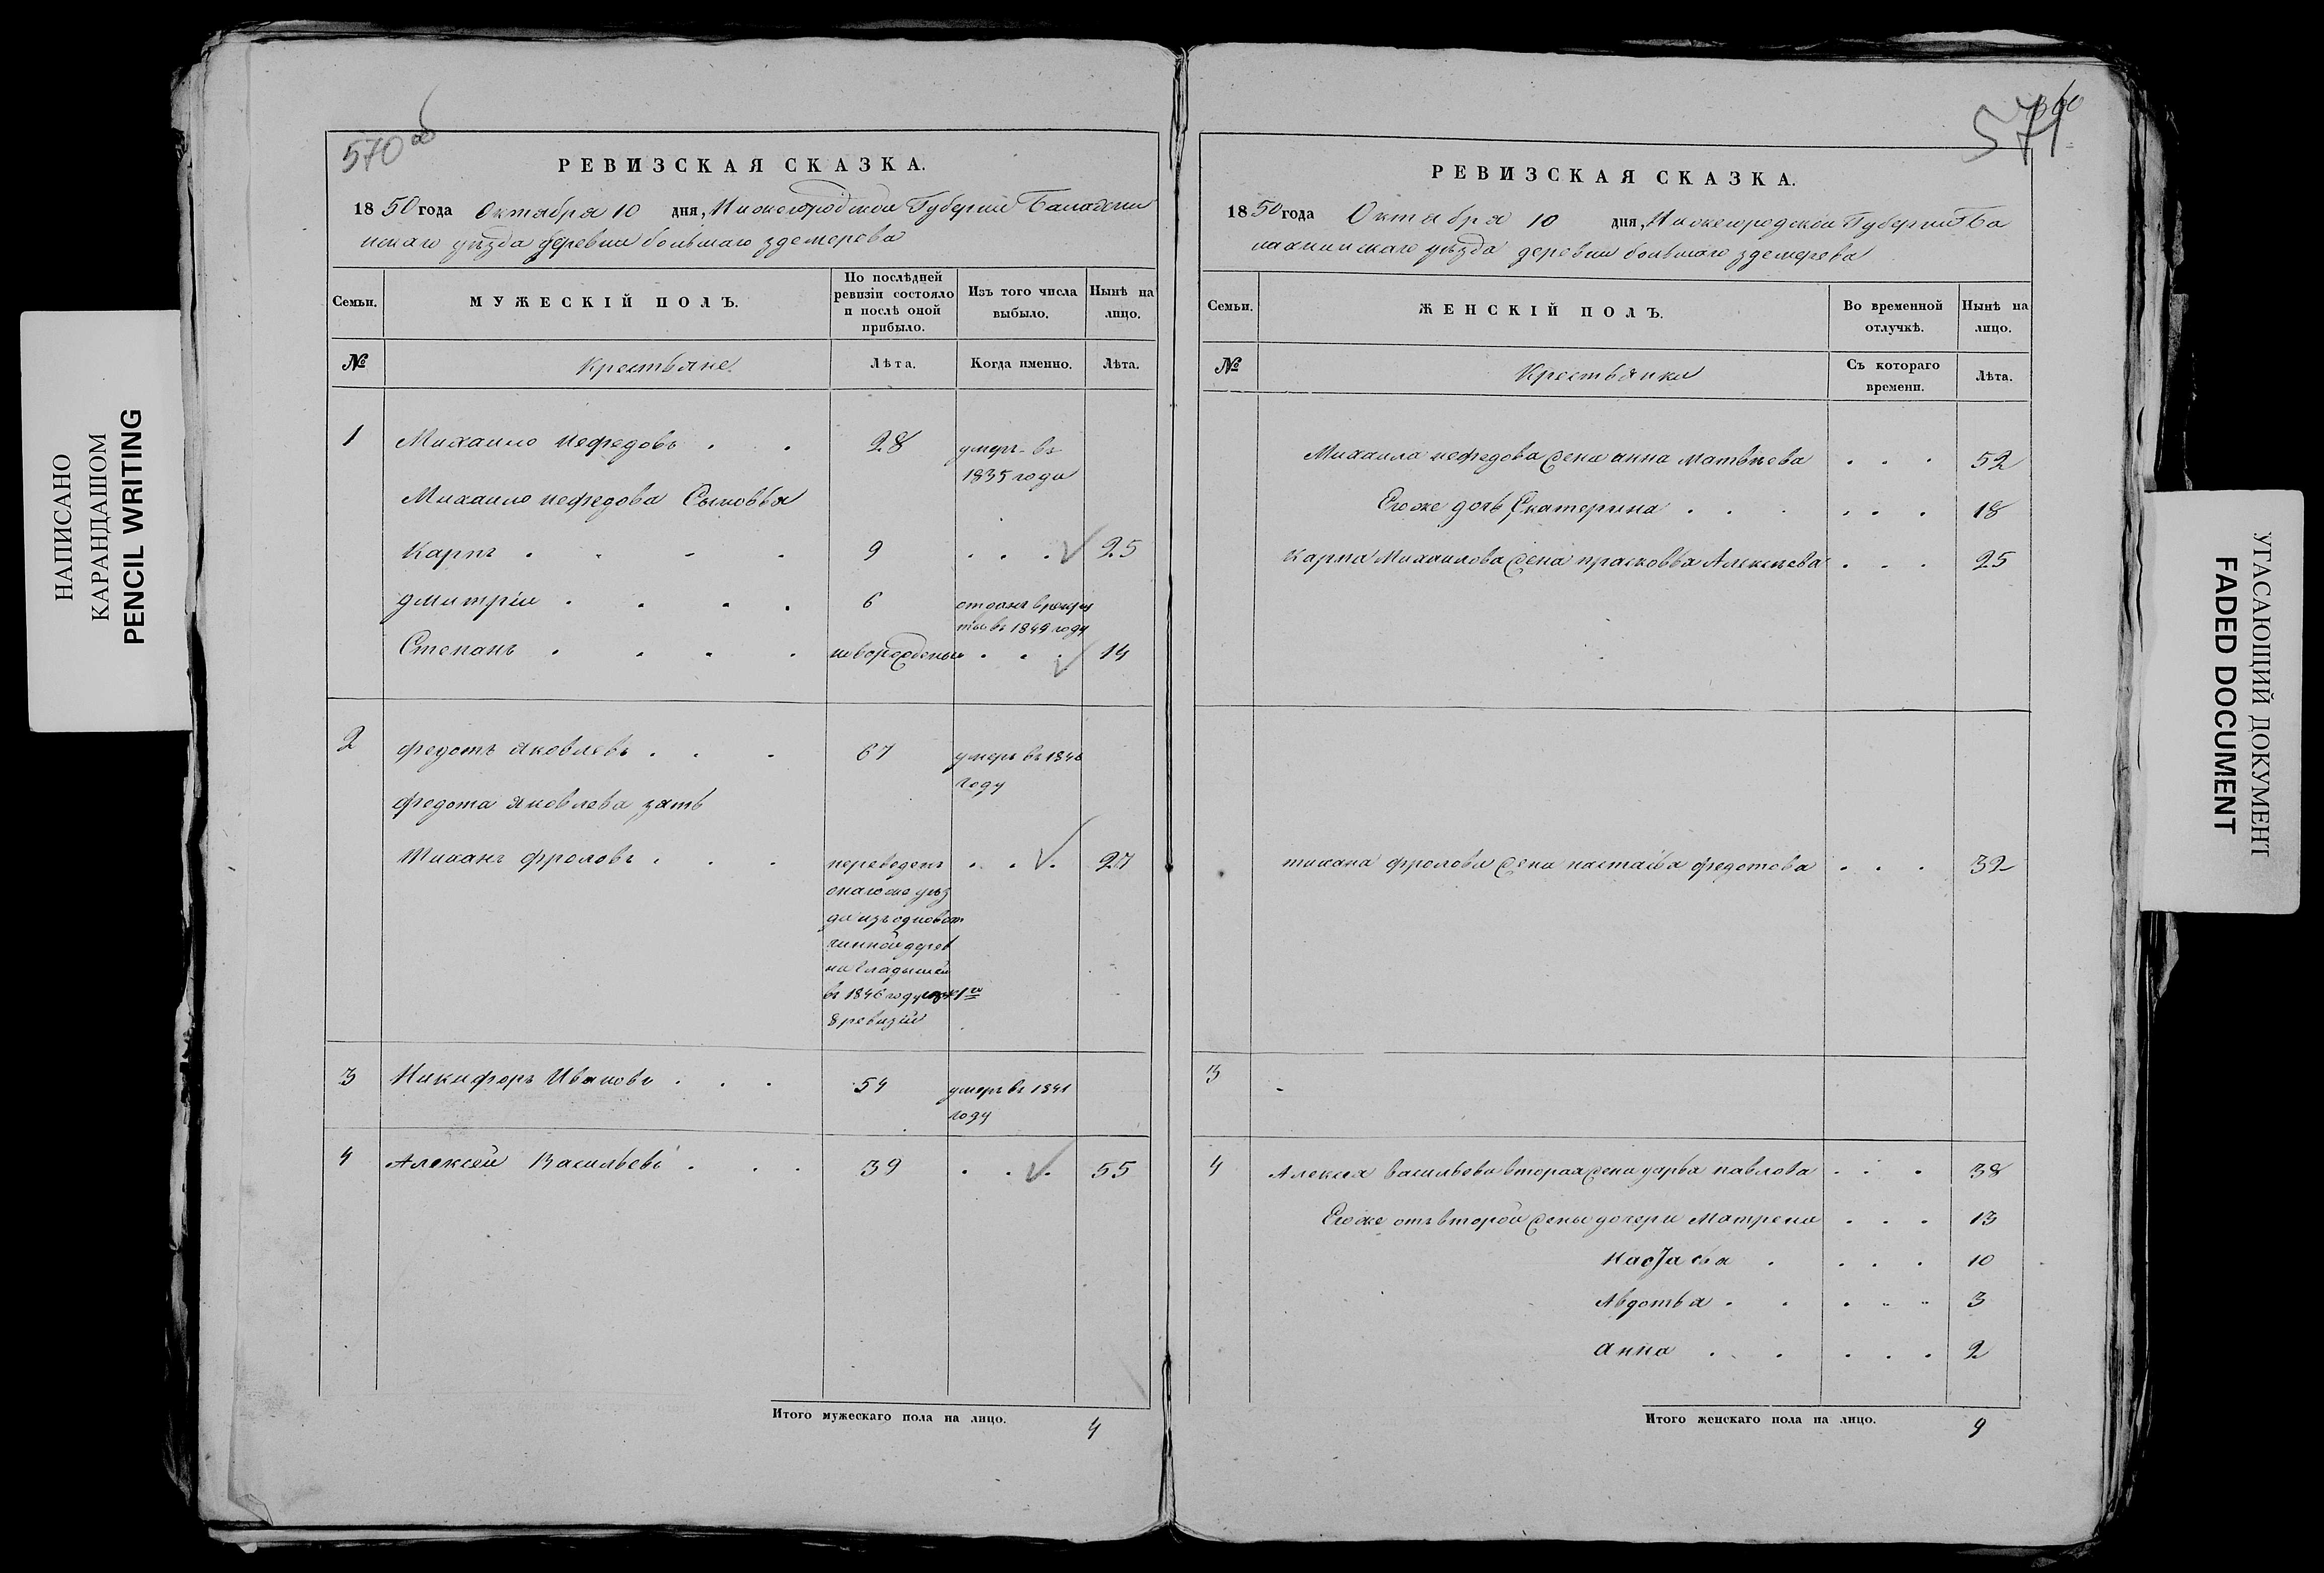 НАПИСАНО
КАРАНДАШОМ
PENCIL WRITING
570 об
РЕВИЗСКАЯ СКАЗКА.
1850 года Октября 10 дня, Нижегородской Губернии Балахни
нскаго уѣзда деревни большаго
Семьи. МУЖЕСКІЙ ПОЛЪ. По послѣдней ревизіи состояло и послѣ оной прибыло. Изъ того числа выбыло. Нынѣ на лицо.
№ Крестьяне Лѣта. Когда именно. Лѣта.
1 Михаило Нефедовъ . . 28 умеръ въ
1835 годи
Михаило нефедова Сыновья
Карпъ . . . . 9 . . . 25
дмитріи . . . . 6 отданъ в рекру
ты въ 1849 году
Степанъ . . . . новорожденыи . . . 14
2 федотъ яковлевъ . . . 67 умеръ въ 1846
году
федота яковлева зять
Тиханъ фроловъ . . . переведенъ . . . 27
онагоже уѣз
да изъ одновот
чинной дерев
ни Гладышей
въ 1846 году
8 ревизіи
3 Никифоръ Ивановъ . . . 54 умеръ въ 1841
году
4 Алексѣй Васильевъ . . . 39 . . . 55
Итого мужескаго пола на лицо. 4
571
РЕВИЗСКАЯ СКАЗКА.
1850 года Октября 10 дня, Нижегородской Губернии Ба
лахнинскаго уѣзда деревни большаго
Семьи. ЖЕНСКІЙ ПОЛЪ. Во временной отлучкѣ. Нынѣ на лицо.
№ Крестьянки Съ котораго времени. Лѣта.
Михаила нефедова жена анна матвѣева . . . 52
Егоже дочь Екатерина . . . . . . 18
Карпа Михаилова жена прасковья Алексѣева . . . 25
тихана фролова жена настасья федотова . . . 32
3
4 Алексѣя васильева вторая жена дарья павлова . . . 38
Егоже отъ второй жены дочери Матрена . . . 13
Настасья . . . . 10
Авдотья . . . . . 3
анна . . . . . 2
Итого женскаго пола на лицо. 9
УГАСАЮЩИЙ ДОКУМЕНТ
FADED DOCUMENT